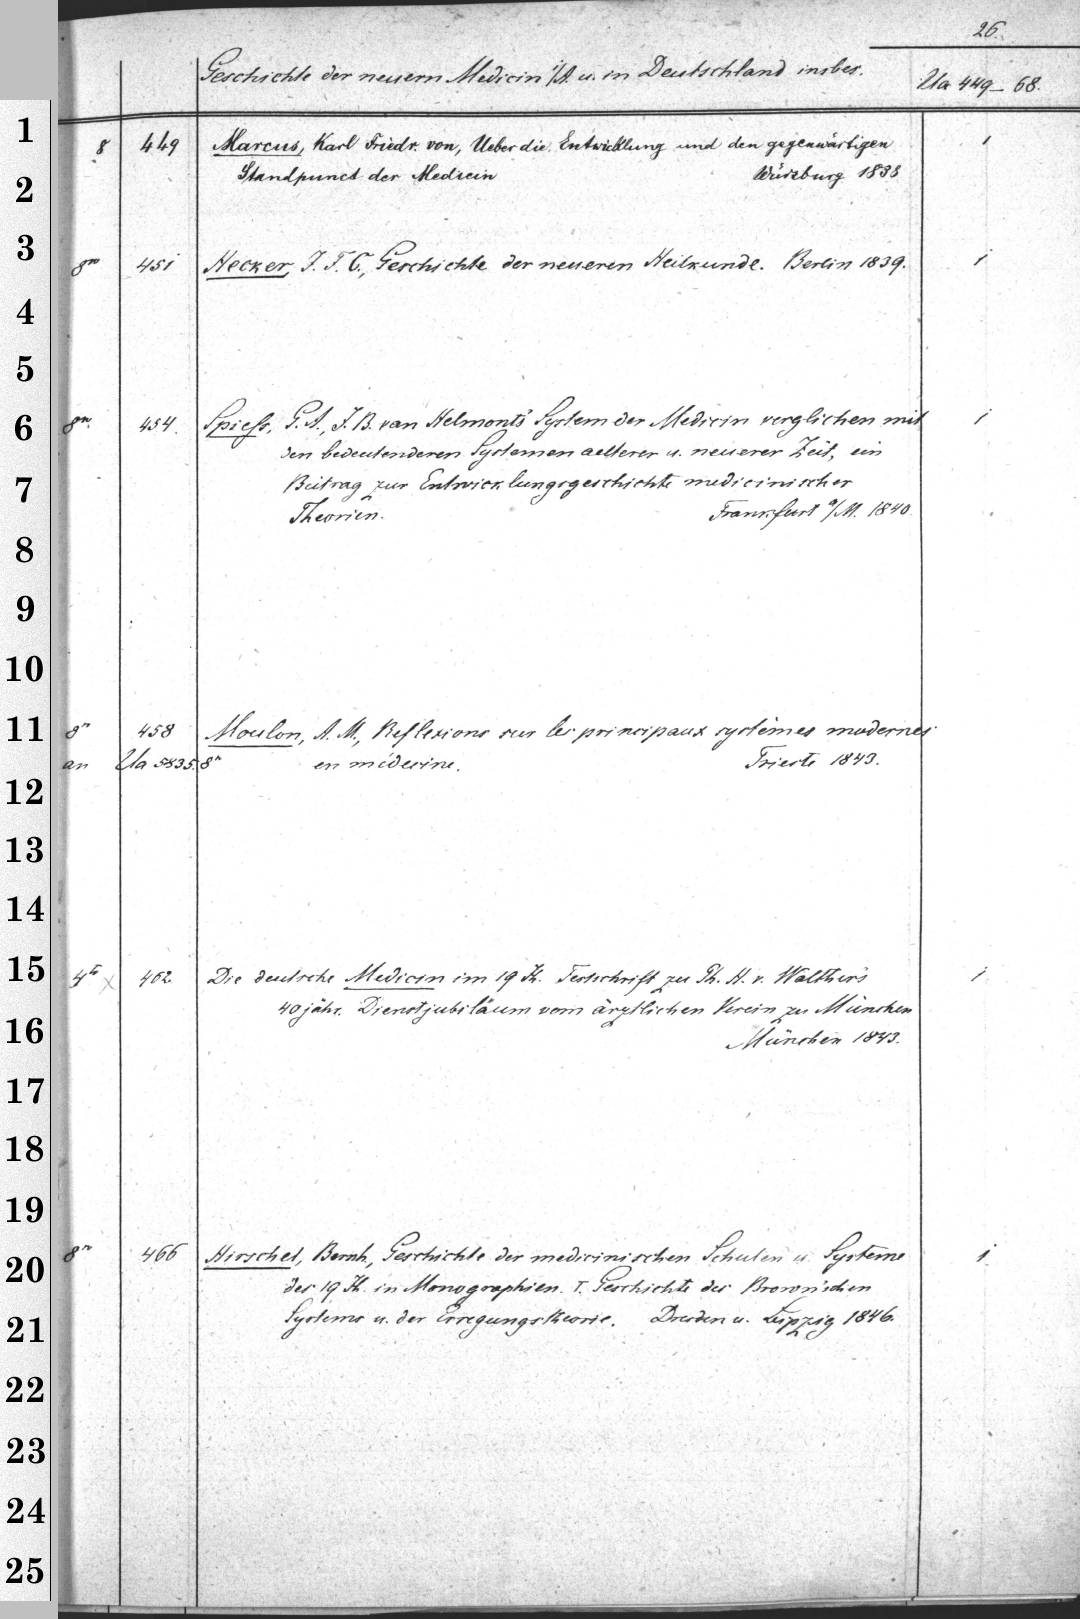 26.
Geschichte der neuern Medicin i/A. u. in Deutschland insbes. Ua 449–68.
1
8 449 Marcus, Karl Friedr. von, Ueber die Entwicklung und den gegenwärtigen 1
2 Standpunct der Medicin Würzburg 1838
3 8º 451 Hecker, J. F. C., Geschichte der neueren Heilkunde. Berlin 1839. 1
4
5
6 8º 454. Spiess, G. A., J. B. van Helmonts' System der Medicin verglichen mit 1
den bedeutenderen Systemen aelterer u. neuerer Zeit, ein
7 Beitrag zur Entwicklungsgeschichte medicinischer
Theorien. Frankfurt a/M. 1840.
8
9
10
11 8º 458 Moulon, A. M., Reflexions sur les principaux systèmes modernes
an Ua 5835.8º en médecine. Trieste 1843.
12
13
14
15 4to × 462 Die deutsche Medicin im 19 Jh. Festschrift zu Ph. F. v. Walther's 1
40jähr. Dienstjubiläum vom ärztlichen Verein zu München
16 München 1843.
17
18
19
20 8º 466 Hirschel, Bernh., Geschichte der medicinischen Schulen u. Systeme 1
des 19 Jh. in Monographien. I. Geschichte des Brown'schen
21 Systems u. der Erregungstheorie. Dresden u. Leipzig 1846.
22
23
24
25